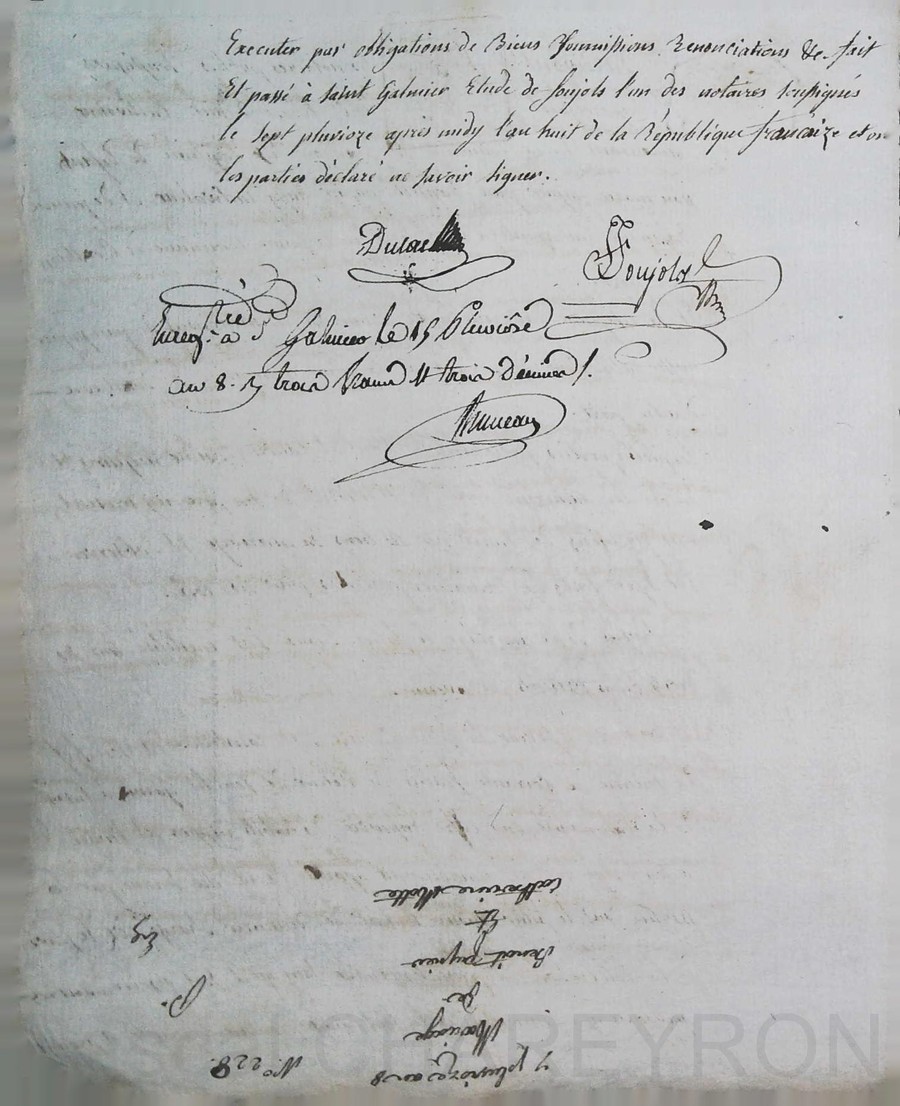 Executer par obligations de Biens Soumissions Renonciations &c. fait
Et passé à Saint Galmier Etude de Soujols l'un des notaires soussignés
le sept pluvioze après midy l'an huit de la République francaize et on
les parties déclaré ne savoir signer.
Dulac
Soujols
Enreg.tré à St Galmier le 15 Pluviôse
an 8. R trois francs trois décimes
N.° 228
7 pluvioze an 8
Mariage
de
P.
Benoît
Et
Enr
Catherine Motte
CHAPEYRON